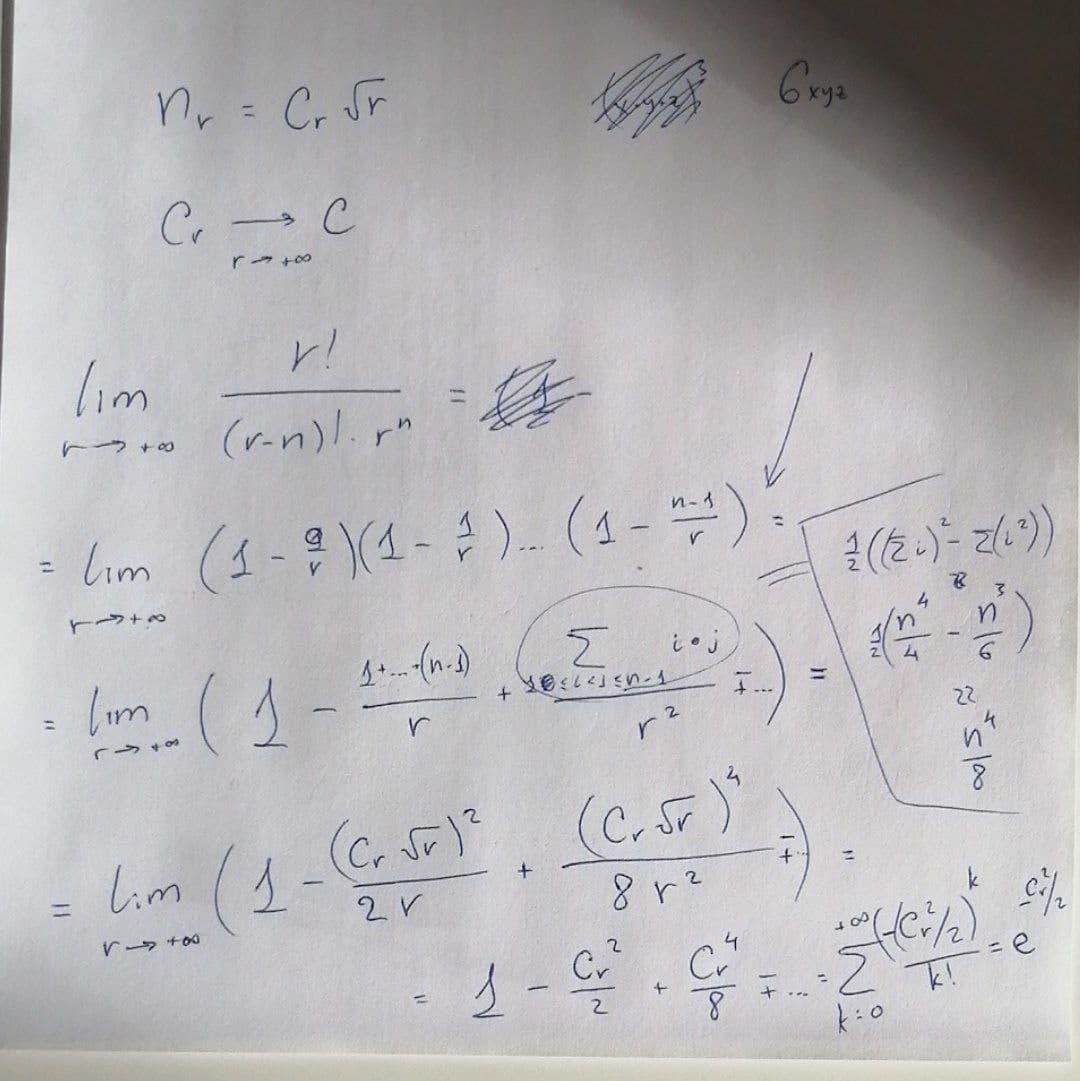 n_r = C_r √r
6xyz
C_r → C
r → +∞
lim r! / ((r-n)! · r^n) =
r → +∞
= lim (1 - 0/r)(1 - 1/r) ... (1 - (n-1)/r) =
r → +∞
= lim (1 - (1+...+(n-1))/r + (Σ i·j)/r² ∓ ...) =
r → +∞
1/2((Σi)² - Σ(i²))
1/2(n⁴/4 - n³/6)
≈
n⁴/8
= lim (1 - (C_r √r)²/(2r) + (C_r √r)⁴/(8r²) ∓ ...) =
r → +∞
= 1 - C_r²/2 + C_r⁴/8 ∓ ... = Σ_{k=0}^{+∞} (-C_r²/2)^k / k! = e^{-C_r²/2}